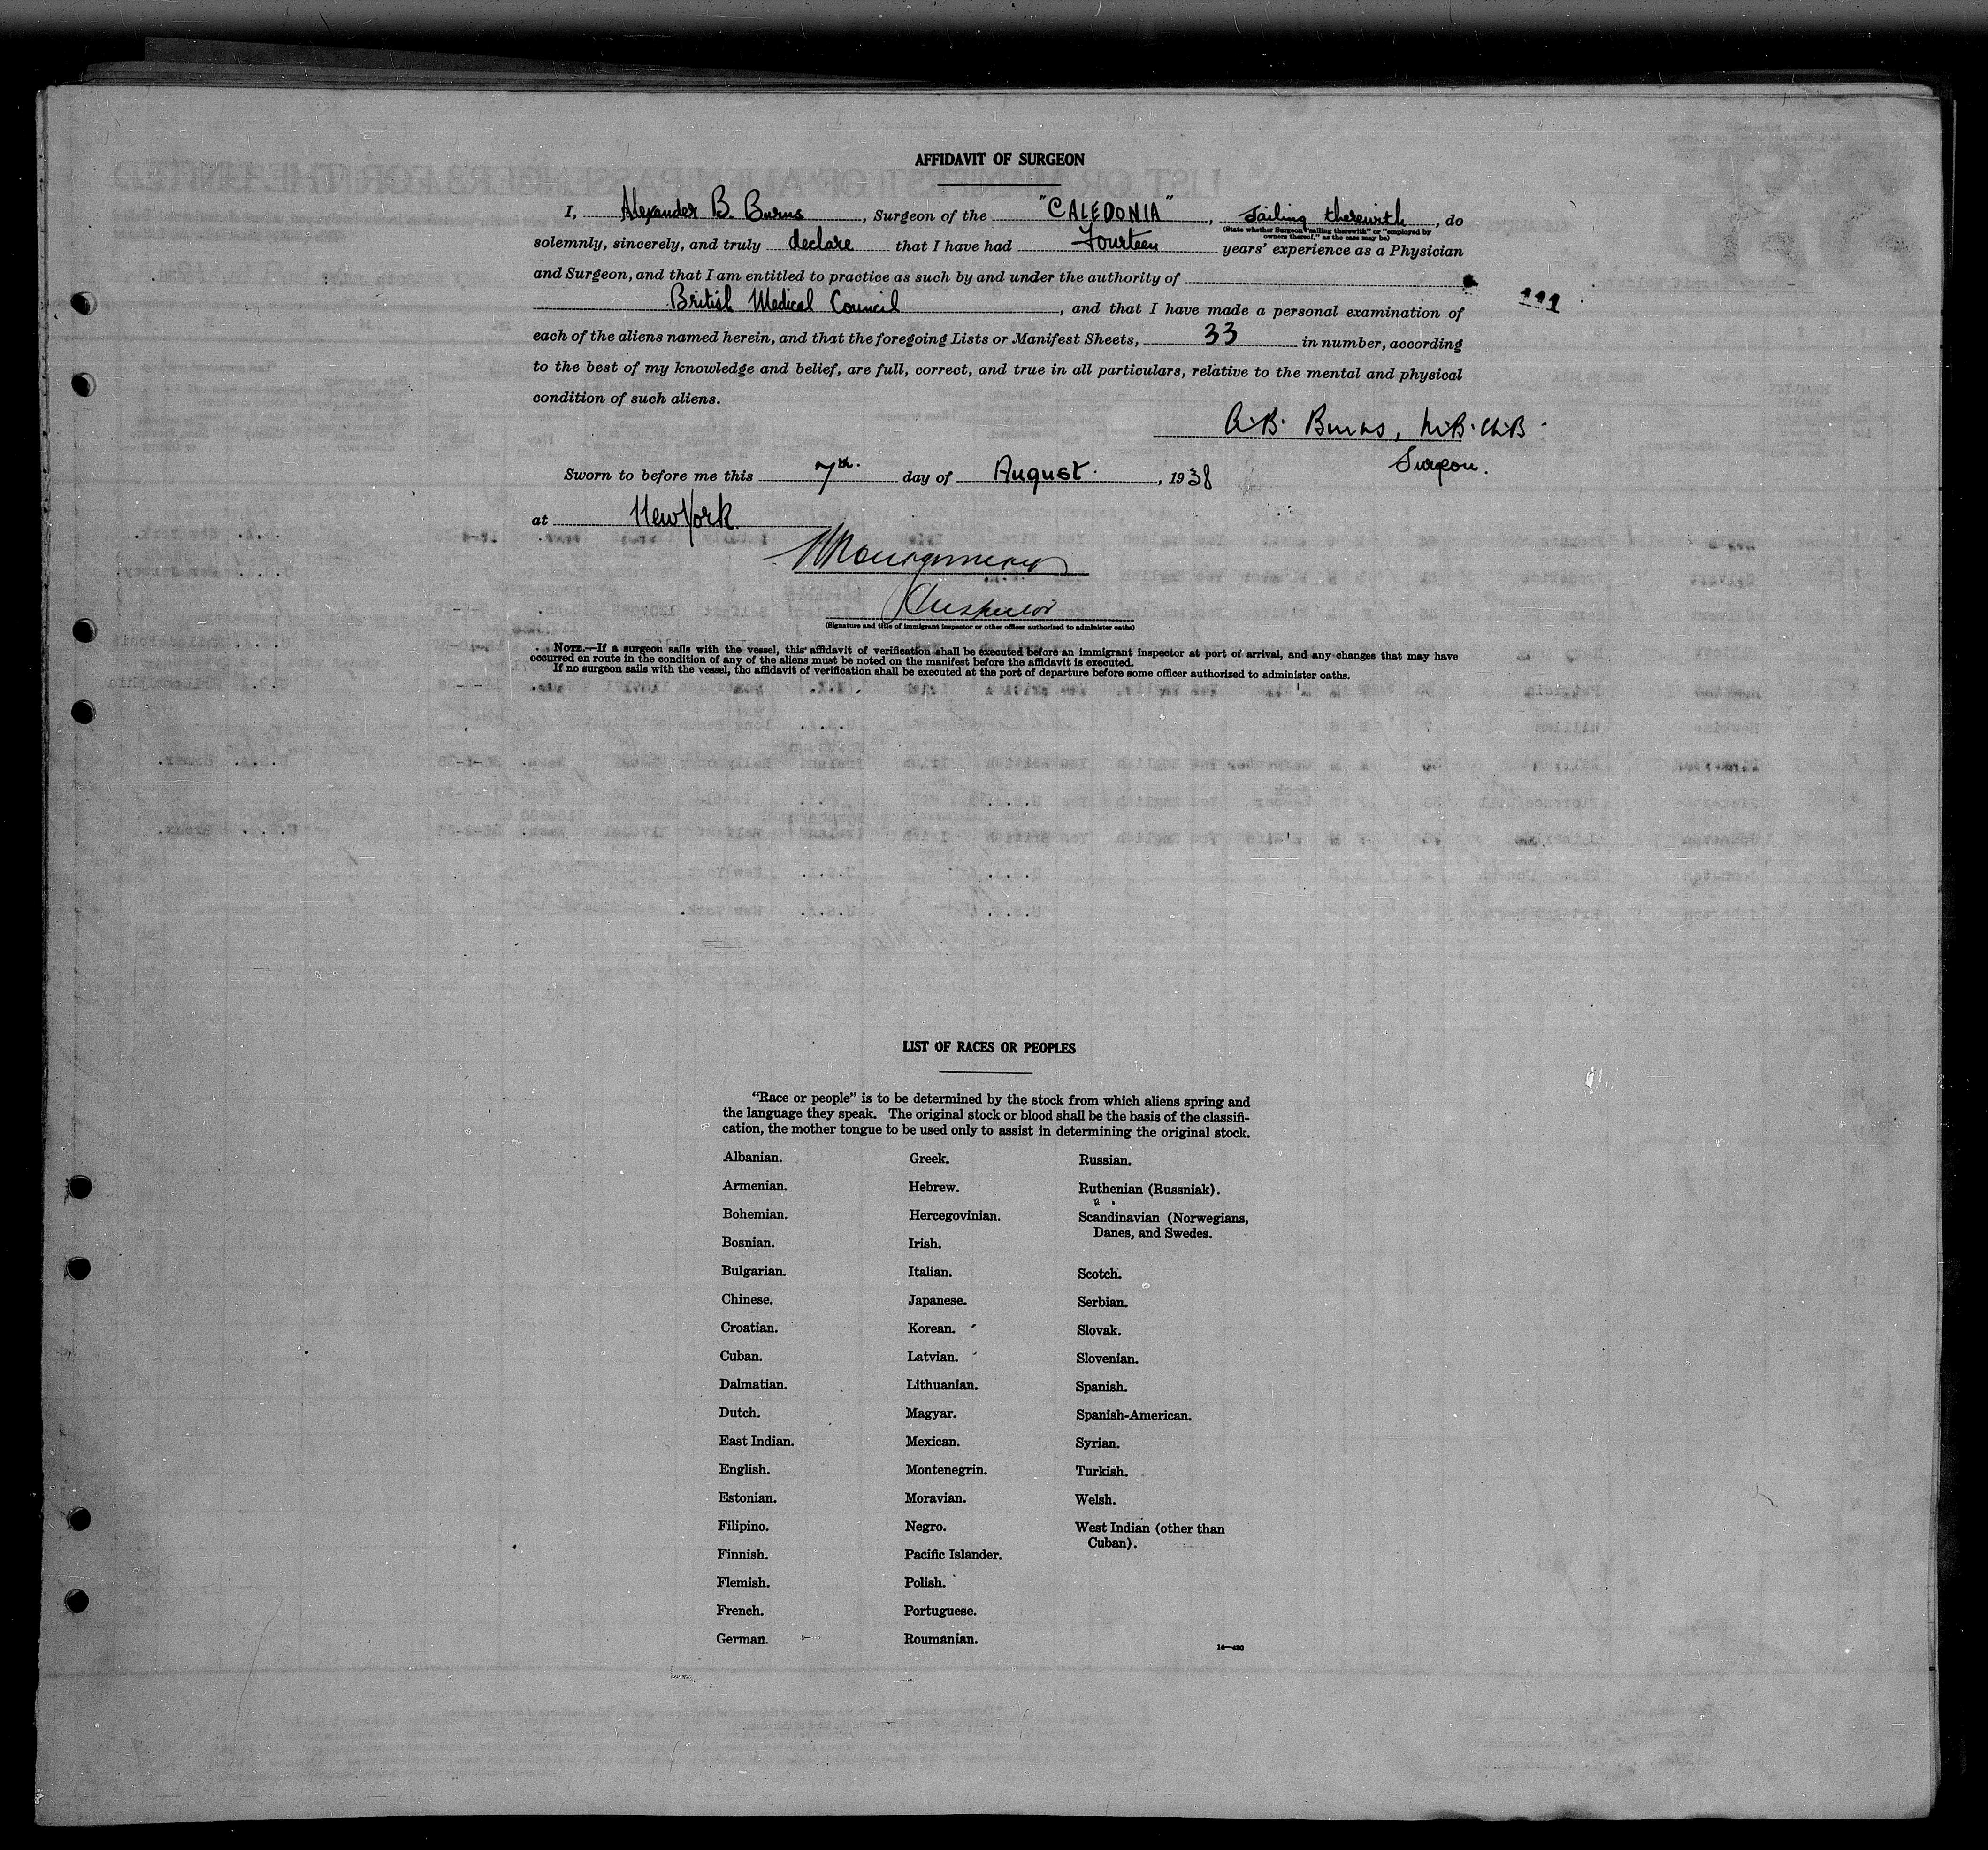 AFFIDAVIT OF SURGEON
I, Alexander B. Burns, Surgeon of the "CALEDONIA", sailing therewith, do
(State whether Surgeon "sailing therewith" or "employed by
owners thereof," as the case may be)
solemnly, sincerely, and truly declare that I have had Fourteen years' experience as a Physician
and Surgeon, and that I am entitled to practice as such by and under the authority of
British Medical Council, and that I have made a personal examination of
each of the aliens named herein, and that the foregoing Lists or Manifest Sheets, 33 in number, according
to the best of my knowledge and belief, are full, correct, and true in all particulars, relative to the mental and physical
condition of such aliens.
A.B. Burns, M.B. Ch.B.
Surgeon.
Sworn to before me this 7th. day of August., 1938
at New York.
Inspector
(Signature and title of immigrant inspector or other officer authorized to administer oaths)
NOTE.—If a surgeon sails with the vessel, this affidavit of verification shall be executed before an immigrant inspector at port of arrival, and any changes that may have
occurred en route in the condition of any of the aliens must be noted on the manifest before the affidavit is executed.
If no surgeon sails with the vessel, the affidavit of verification shall be executed at the port of departure before some officer authorized to administer oaths.
LIST OF RACES OR PEOPLES
"Race or people" is to be determined by the stock from which aliens spring and
the language they speak. The original stock or blood shall be the basis of the classifi-
cation, the mother tongue to be used only to assist in determining the original stock.
Albanian.
Armenian.
Bohemian.
Bosnian.
Bulgarian.
Chinese.
Croatian.
Cuban.
Dalmatian.
Dutch.
East Indian.
English.
Estonian.
Filipino.
Finnish.
Flemish.
French.
German.
Greek.
Hebrew.
Hercegovinian.
Irish.
Italian.
Japanese.
Korean.
Latvian.
Lithuanian.
Magyar.
Mexican.
Montenegrin.
Moravian.
Negro.
Pacific Islander.
Polish.
Portuguese.
Roumanian.
Russian.
Ruthenian (Russniak).
Scandinavian (Norwegians,
Danes, and Swedes.
Scotch.
Serbian.
Slovak.
Slovenian.
Spanish.
Spanish-American.
Syrian.
Turkish.
Welsh.
West Indian (other than
Cuban).